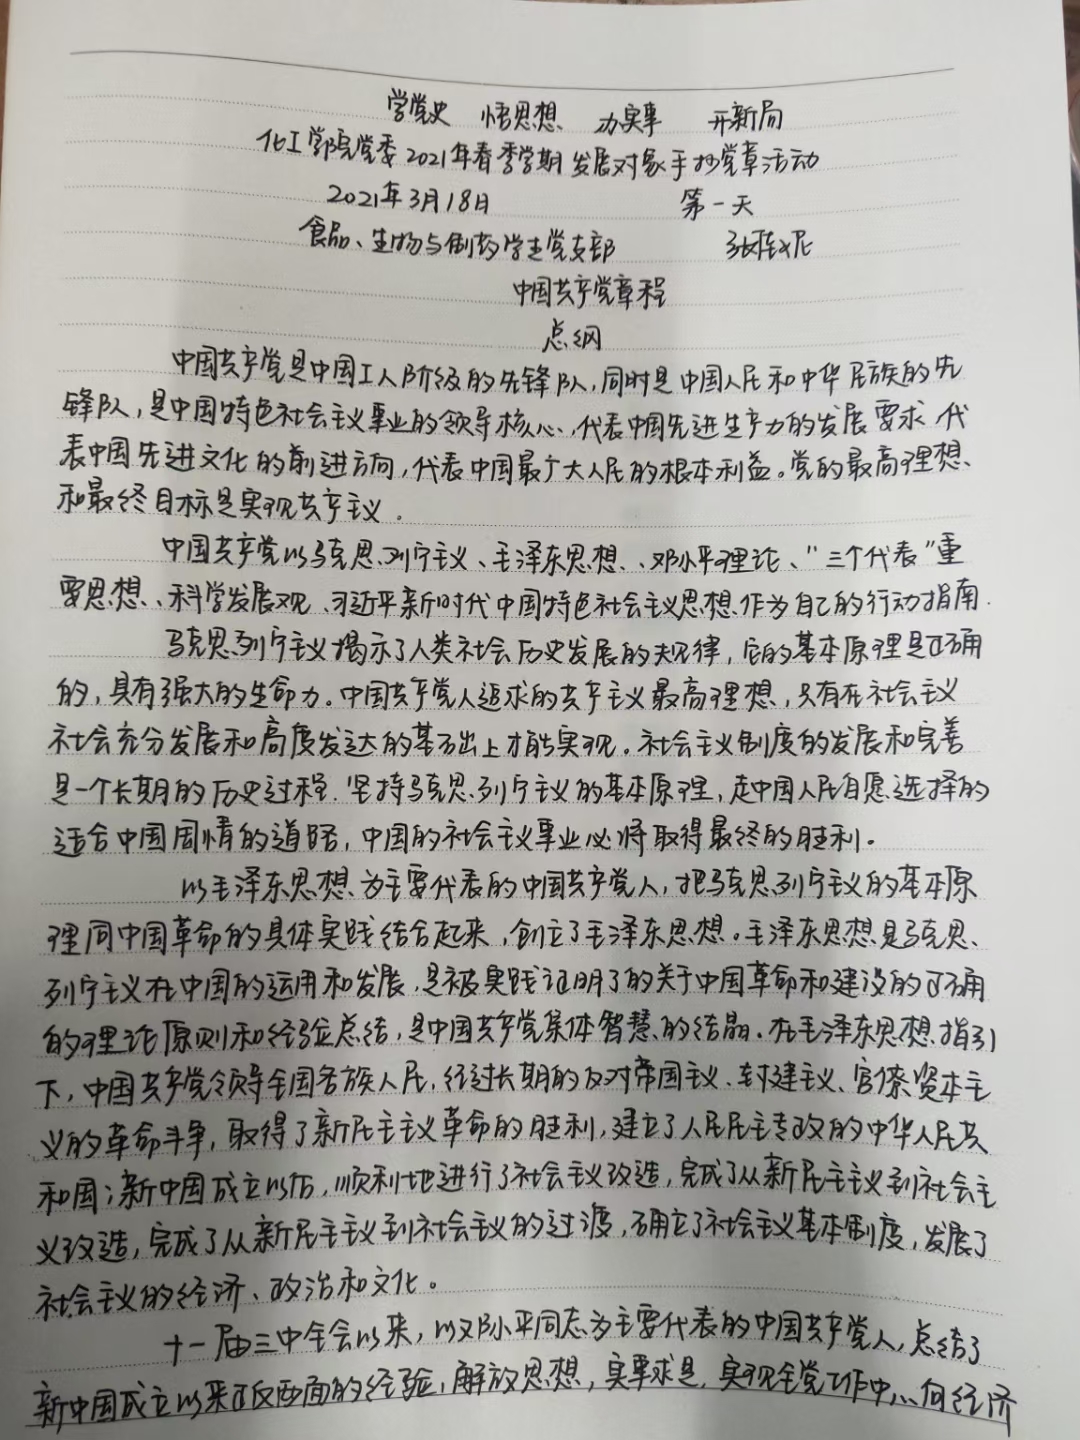 学党史 悟思想 办实事 开新局
化工学院党委2021年春季学期发展对象手抄党章活动
2021年3月18日 第一天
食品、生物与制药学生党支部
中国共产党章程
总纲
中国共产党是中国工人阶级的先锋队,同时是中国人民和中华民族的先
锋队,是中国特色社会主义事业的领导核心,代表中国先进生产力的发展要求 代
表中国先进文化的前进方向,代表中国最广大人民的根本利益。党的最高理想
和最终目标是实现共产主义.
中国共产党以马克思列宁主义、毛泽东思想、邓小平理论、“三个代表”重
要思想、科学发展观、习近平新时代中国特色社会主义思想作为自己的行动指南.
马克思列宁主义揭示了人类社会历史发展的规律,它的基本原理是正确
的,具有强大的生命力。中国共产党人追求的共产主义最高理想,只有在社会主义
社会充分发展和高度发达的基础上才能实现。社会主义制度的发展和完善
是一个长期的历史过程.坚持马克思列宁主义的基本原理,走中国人民自愿选择的
适合中国国情的道路,中国的社会主义事业必将取得最终的胜利。
以毛泽东思想为主要代表的中国共产党人,把马克思列宁主义的基本原
理同中国革命的具体实践结合起来,创立了毛泽东思想。毛泽东思想是马克思
列宁主义在中国的运用和发展,是被实践证明了的关于中国革命和建设的正确
的理论原则和经验总结,是中国共产党集体智慧的结晶.在毛泽东思想指引
下,中国共产党领导全国各族人民,经过长期的反对帝国主义、封建主义、官僚资本主
义的革命斗争,取得了新民主主义革命的胜利,建立了人民民主专政的中华人民共
和国;新中国成立以后,顺利地进行了社会主义改造,完成了从新民主主义到社会主
义改造,完成了从新民主主义到社会主义的过渡,确立了社会主义基本制度,发展了
社会主义的经济、政治和文化。
十一届三中全会以来,以邓小平同志为主要代表的中国共产党人,总结了
新中国成立以来正反两面的经验,解放思想,实事求是,实现全党工作中心向经济